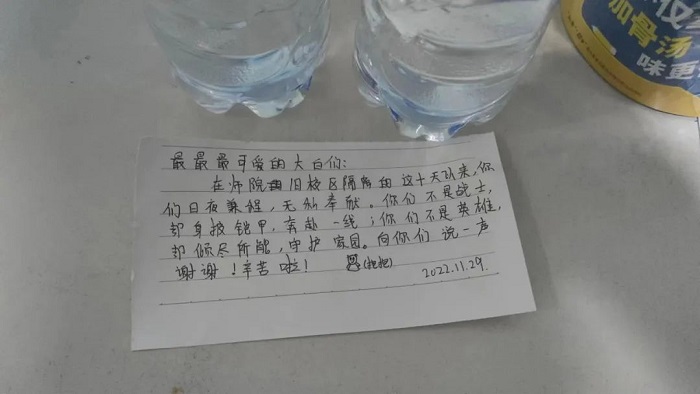 加骨汤
味更
最最最可爱的大白们：
在师院旧校区隔离的这十天以来，你
们日夜兼程，无私奉献。你们不是战士，
却身披铠甲，奔赴一线；你们不是英雄，
却倾尽所能，守护家园。向你们说一声
谢谢！辛苦啦！ (抱抱)
2022.11.29.